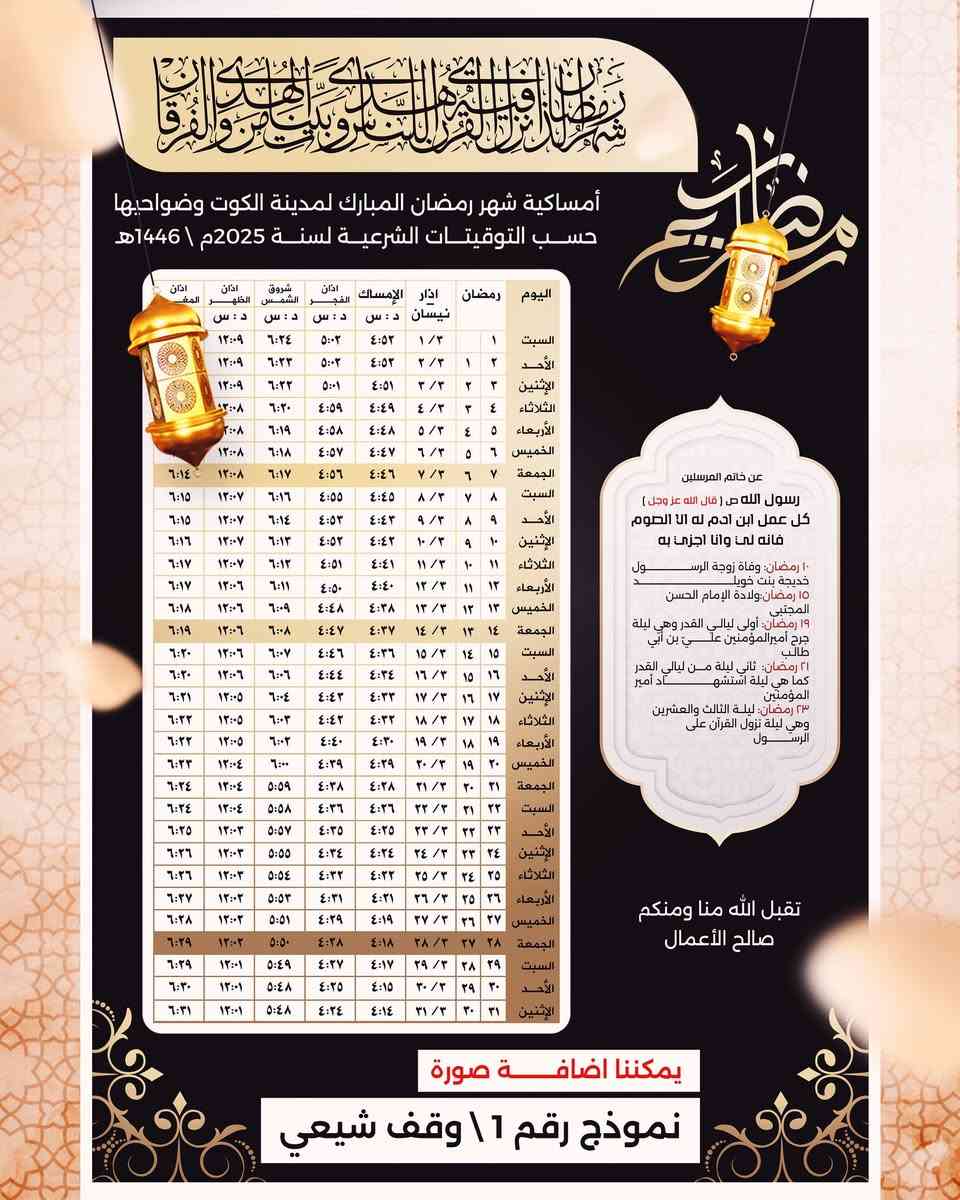 شَهْرُ رَمَضَانَ الَّذِي أُنْزِلَ فِيهِ الْقُرْآنُ هُدًى لِلنَّاسِ وَبَيِّنَاتٍ مِنَ الْهُدَى وَالْفُرْقَانِ
رمضان كريم
أمساكية شهر رمضان المبارك لمدينة الكوت وضواحيها
حسب التوقيتات الشرعية لسنة 2025م \ 1446هـ
اليوم رمضان اذار – نيسان الإمساك اذان الفجر شروق الشمس اذان الظهر اذان
د : س د : س د : س د : س
السبت ١ ١/٣ ٤:٥٢ ٥:٠٢ ٦:٢٤ ١٢:٠٩
الأحد ٢ ١ ٢/٣ ٤:٥٢ ٥:٠٢ ٦:٢٣ ١٢:٠٩
الإثنين ٣ ٢ ٣/٣ ٤:٥١ ٥:٠١ ٦:٢٢ ١٢:٠٩
الثلاثاء ٤ ٣ ٤/٣ ٤:٤٩ ٤:٥٩ ٦:٢٠ ١٢:٠٨
الأربعاء ٥ ٤ ٥/٣ ٤:٤٨ ٤:٥٨ ٦:١٩ ١٢:٠٨
الخميس ٦ ٥ ٦/٣ ٤:٤٧ ٤:٥٧ ٦:١٨ ١٢:٠٨
الجمعة ٧ ٦ ٧/٣ ٤:٤٦ ٤:٥٦ ٦:١٧ ١٢:٠٨ ٦:١٤
السبت ٨ ٧ ٨/٣ ٤:٤٥ ٤:٥٥ ٦:١٦ ١٢:٠٧ ٦:١٥
الأحد ٩ ٨ ٩/٣ ٤:٤٣ ٤:٥٣ ٦:١٤ ١٢:٠٧ ٦:١٥
الإثنين ١٠ ٩ ١٠/٣ ٤:٤٢ ٤:٥٢ ٦:١٣ ١٢:٠٧ ٦:١٦
الثلاثاء ١١ ١٠ ١١/٣ ٤:٤١ ٤:٥١ ٦:١٢ ١٢:٠٧ ٦:١٧
الأربعاء ١٢ ١١ ١٢/٣ ٤:٤٠ ٤:٥٠ ٦:١١ ١٢:٠٦ ٦:١٧
الخميس ١٣ ١٢ ١٣/٣ ٤:٣٨ ٤:٤٨ ٦:٠٩ ١٢:٠٦ ٦:١٨
الجمعة ١٤ ١٣ ١٤/٣ ٤:٣٧ ٤:٤٧ ٦:٠٨ ١٢:٠٦ ٦:١٩
السبت ١٥ ١٤ ١٥/٣ ٤:٣٦ ٤:٤٦ ٦:٠٧ ١٢:٠٦ ٦:٢٠
الأحد ١٦ ١٥ ١٦/٣ ٤:٣٤ ٤:٤٤ ٦:٠٦ ١٢:٠٦ ٦:٢٠
الإثنين ١٧ ١٦ ١٧/٣ ٤:٣٣ ٤:٤٣ ٦:٠٤ ١٢:٠٥ ٦:٢١
الثلاثاء ١٨ ١٧ ١٨/٣ ٤:٣٢ ٤:٤٢ ٦:٠٣ ١٢:٠٥ ٦:٢٢
الأربعاء ١٩ ١٨ ١٩/٣ ٤:٣٠ ٤:٤٠ ٦:٠٢ ١٢:٠٥ ٦:٢٢
الخميس ٢٠ ١٩ ٢٠/٣ ٤:٢٩ ٤:٣٩ ٦:٠٠ ١٢:٠٤ ٦:٢٣
الجمعة ٢١ ٢٠ ٢١/٣ ٤:٢٨ ٤:٣٨ ٥:٥٩ ١٢:٠٤ ٦:٢٤
السبت ٢٢ ٢١ ٢٢/٣ ٤:٢٦ ٤:٣٦ ٥:٥٨ ١٢:٠٤ ٦:٢٤
الأحد ٢٣ ٢٢ ٢٣/٣ ٤:٢٥ ٤:٣٥ ٥:٥٧ ١٢:٠٣ ٦:٢٥
الإثنين ٢٤ ٢٣ ٢٤/٣ ٤:٢٤ ٤:٣٤ ٥:٥٥ ١٢:٠٣ ٦:٢٦
الثلاثاء ٢٥ ٢٤ ٢٥/٣ ٤:٢٢ ٤:٣٢ ٥:٥٤ ١٢:٠٣ ٦:٢٦
الأربعاء ٢٦ ٢٥ ٢٦/٣ ٤:٢١ ٤:٣١ ٥:٥٣ ١٢:٠٢ ٦:٢٧
الخميس ٢٧ ٢٦ ٢٧/٣ ٤:١٩ ٤:٢٩ ٥:٥١ ١٢:٠٢ ٦:٢٨
الجمعة ٢٨ ٢٧ ٢٨/٣ ٤:١٨ ٤:٢٨ ٥:٥٠ ١٢:٠٢ ٦:٢٩
السبت ٢٩ ٢٨ ٢٩/٣ ٤:١٧ ٤:٢٧ ٥:٤٩ ١٢:٠١ ٦:٢٩
الأحد ٣٠ ٢٩ ٣٠/٣ ٤:١٥ ٤:٢٥ ٥:٤٨ ١٢:٠١ ٦:٣٠
الإثنين ٣١ ٣٠ ٣١/٣ ٤:١٤ ٤:٢٤ ٥:٤٨ ١٢:٠١ ٦:٣١
عن خاتم المرسلين
رسول الله ص ( قال الله عز وجل )
كل عمل ابن ادم له الا الصوم
فانه لي وانا اجزي به
١٠ رمضان: وفاة زوجة الرسول
خديجة بنت خويلد
١٥ رمضان:ولادة الإمام الحسن
المجتبى
١٩ رمضان: أولى ليالي القدر وهي ليلة
جرح أميرالمؤمنين علي بن أبي
طالب
٢١ رمضان: ثاني ليلة من ليالي القدر
كما هي ليلة استشهاد أمير
المؤمنين
٢٣ رمضان: ليلة الثالث والعشرين
وهي ليلة نزول القرآن على
الرسول
تقبل الله منا ومنكم
صالح الأعمال
يمكننا اضافة صورة
نموذج رقم 1 \ وقف شيعي